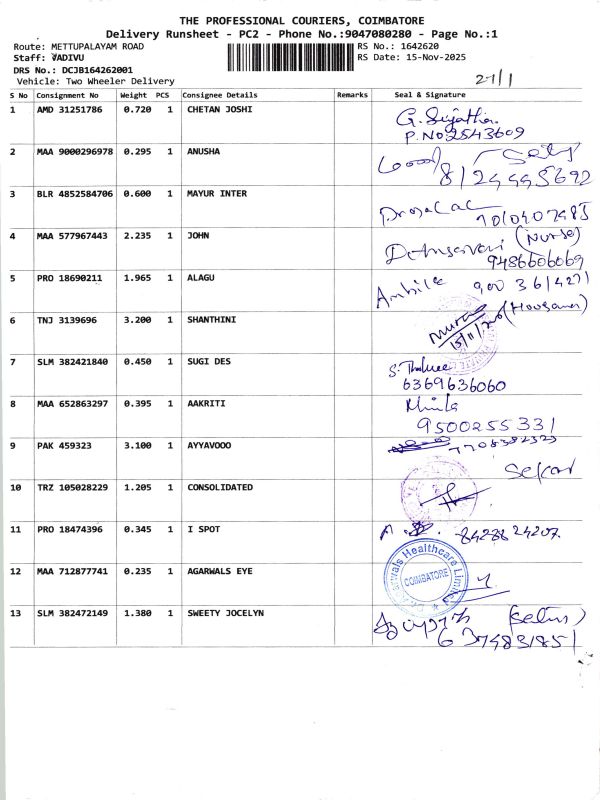 THE PROFESSIONAL COURIERS, COIMBATORE
Delivery Runsheet - PC2 - Phone No.:9047080280 - Page No.:1
Route: METTUPALAYAM ROAD
RS No.: 1642620
Staff: VADIVU
RS Date: 15-Nov-2025
DRS No.: DCJB164262001
Vehicle: Two Wheeler Delivery
S No Consignment No Weight PCS Consignee Details Remarks Seal & Signature
1 AMD 31251786 0.720 1 CHETAN JOSHI
P.No 2543609
2 MAA 9000296978 0.295 1 ANUSHA
3 BLR 4852584706 0.600 1 MAYUR INTER
4 MAA 577967443 2.235 1 JOHN (Nurse)
9486606069
5 PRO 18690211 1.965 1 ALAGU
6 TNJ 3139696 3.200 1 SHANTHINI
7 SLM 382421840 0.450 1 SUGI DES
6369636060
8 MAA 652863297 0.395 1 AAKRITI
9500255331
9 PAK 459323 3.100 1 AYYAVOOO
10 TRZ 105028229 1.205 1 CONSOLIDATED
11 PRO 18474396 0.345 1 I SPOT
12 MAA 712877741 0.235 1 AGARWALS EYE
Agarwals Healthcare Limited
COIMBATORE
13 SLM 382472149 1.380 1 SWEETY JOCELYN
6374831851